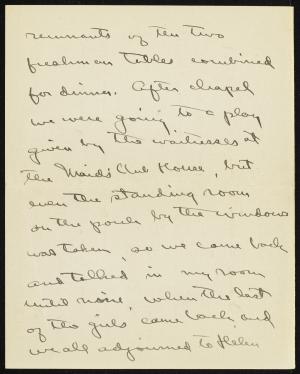 remnants of ten two
freshman tables combined
for dinner. After chapel
we were going to a play
given by the waitresses at
the Maid's Club House, but
even the standing room
on the porch by the windows
was taken, so we came back
and talked in my room
until nine, when the last
of the girls came back, and
we all adjourned to Helen